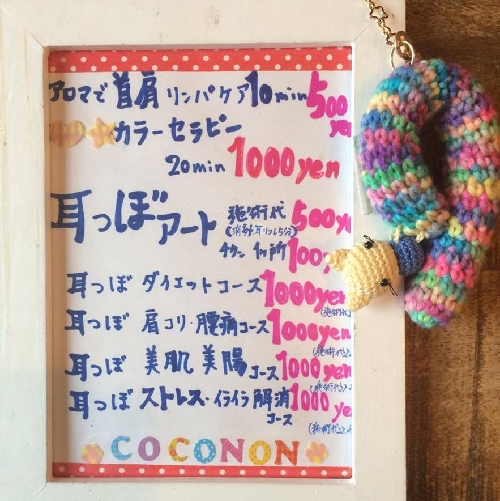 アロマで 首肩 リンパケア 10min 500 ye
カラーセラピー
20min 1000yen
耳つぼアート 施術代 500 ye
チタン 1ヶ所 100
耳つぼ ダイエットコース 1000yen
耳つぼ 肩コリ・腰痛コース 1000yen
耳つぼ 美肌 美腸 コース 1000yen
耳つぼ ストレス・イライラ解消 コース 1000 ye
COCONON